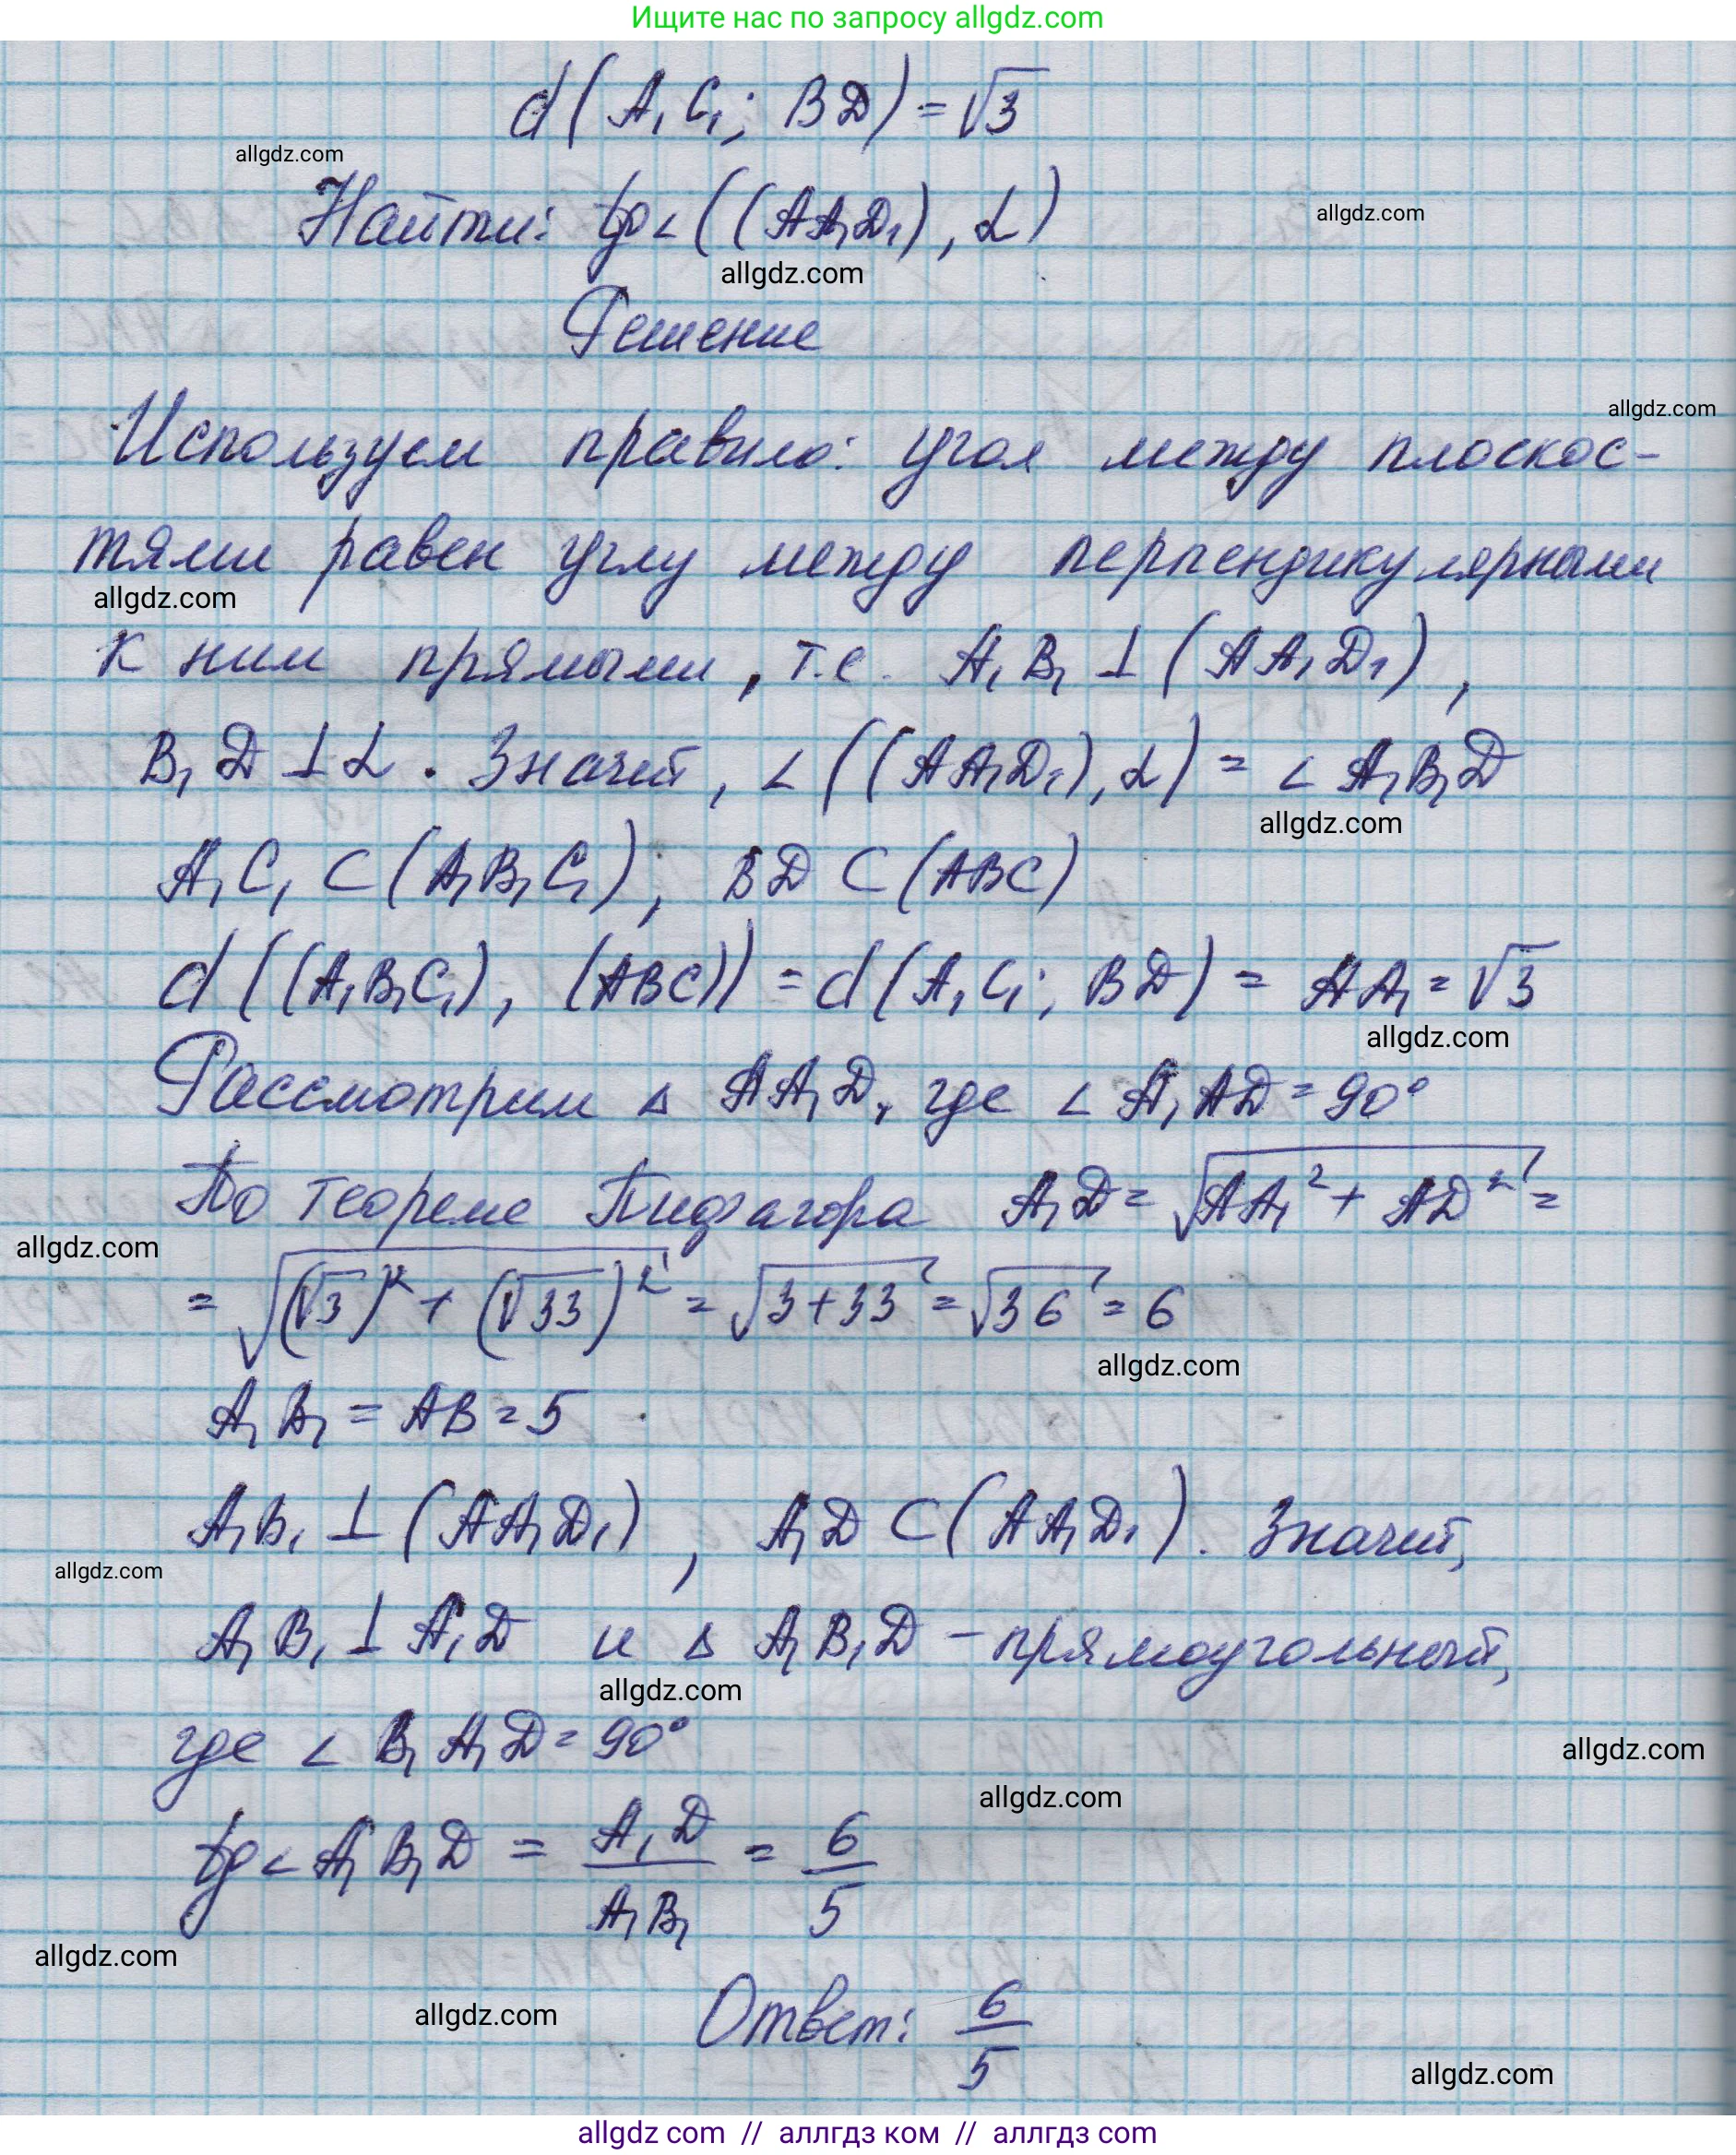 Ищите нас по запросу allgdz.com
d(A₁C₁; BD) = √3
allgdz.com
Найти: tg∠((AA₁D₁), α)
allgdz.com
allgdz.com
Решение
Используем правило: угол между плоскос-
allgdz.com
тями равен углу между перпендикулярными
allgdz.com
к ним прямыми, т.е. A₁B₁ ⊥ (AA₁D₁),
B₁D ⊥ α. Значит, ∠((AA₁D₁), α) = ∠A₁B₁D
allgdz.com
A₁C₁ ⊂ (A₁B₁C₁), BD ⊂ (ABC)
d((A₁B₁C₁), (ABC)) = d(A₁C₁; BD) = AA₁ = √3
allgdz.com
Рассмотрим △ AA₁D, где ∠A₁AD = 90°
По теореме Пифагора A₁D = √(AA₁² + AD²) =
allgdz.com
= √((√3)² + (√33)²) = √(3+33) = √36 = 6
allgdz.com
A₁B₁ = AB = 5
A₁B₁ ⊥ (AA₁D₁), A₁D ⊂ (AA₁D₁). Значит,
allgdz.com
A₁B₁ ⊥ A₁D и △ A₁B₁D – прямоугольный,
allgdz.com
где ∠B₁A₁D = 90°
allgdz.com
allgdz.com
tg∠A₁B₁D = A₁D/A₁B₁ = 6/5
allgdz.com
allgdz.com
Ответ: 6/5
allgdz.com
allgdz com // аллгдз ком // аллгдз com